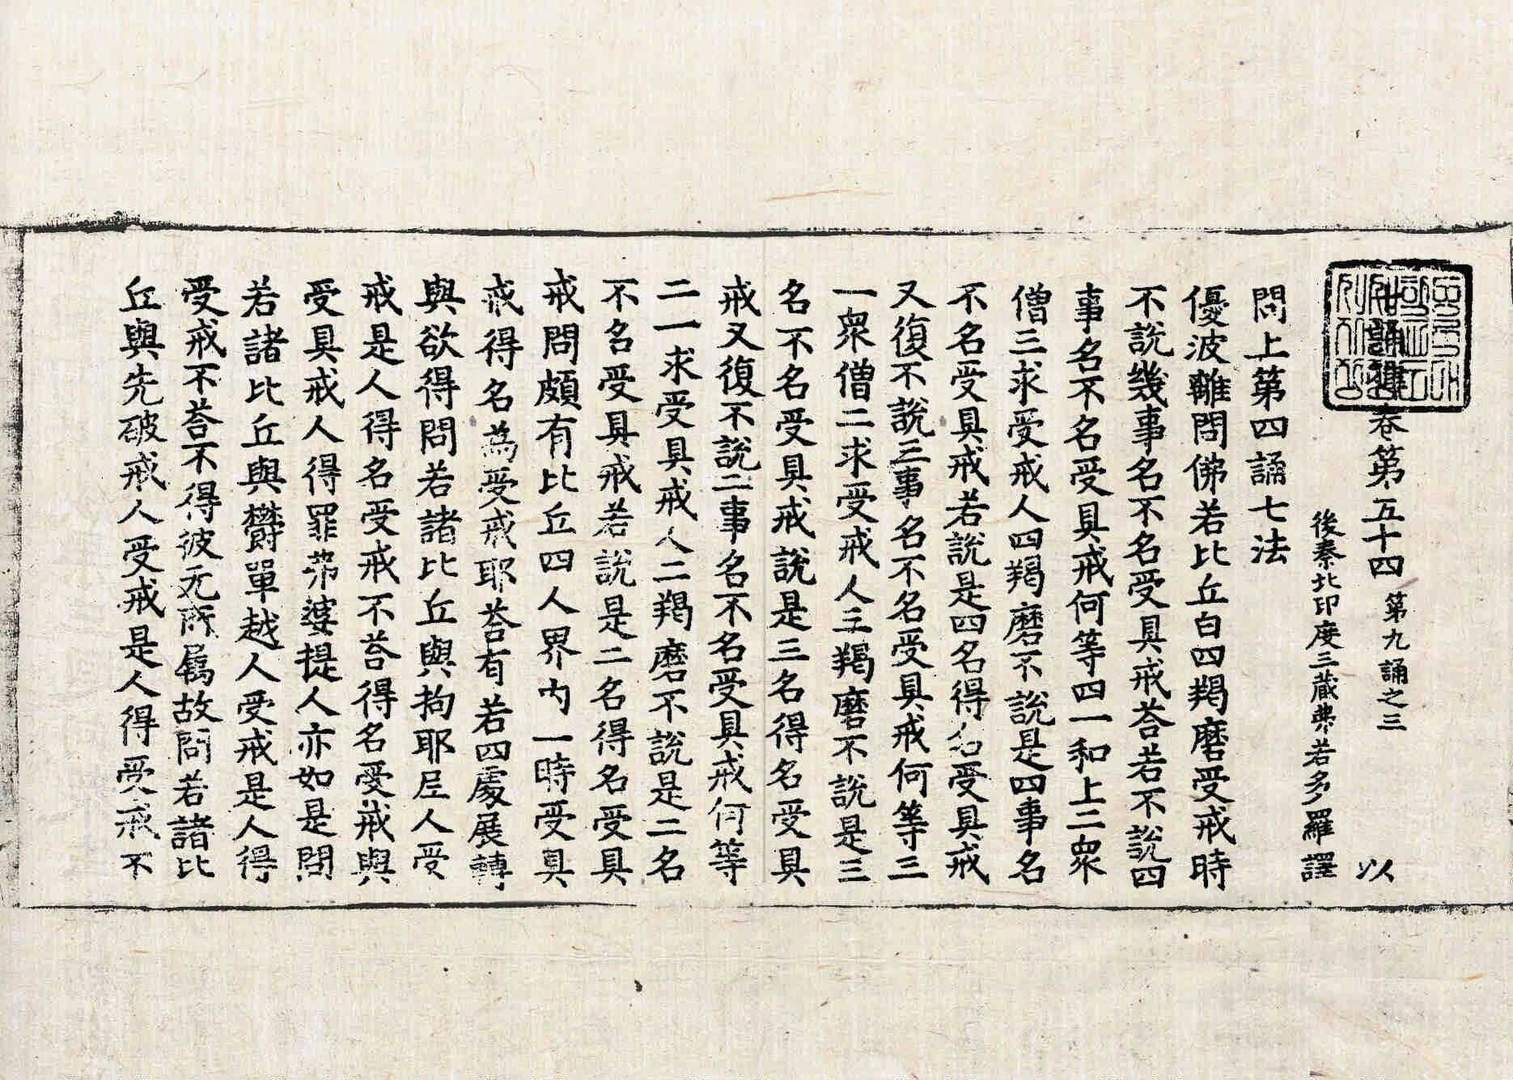 十誦律卷第五十四 第九誦之三 以
後秦北印度三藏弗若多羅譯
問上第四誦七法
優波離問佛若比丘白四羯磨受戒時
不說幾事名不名受具戒荅若不說四
事名不名受具戒何等四一和上二衆
僧三求受戒人四羯磨不說是四事名
不名受具戒若說是四名得名受具戒
又復不說三事名不名受具戒何等三
一衆僧二求受戒人三羯磨不說是三
名不名受具戒說是三名得名受具
戒又復不說二事名不名受具戒何等
二一求受具戒人二羯磨不說是二名
不名受具戒若說是二名得名受具
戒問頗有比丘四人界內一時受具
戒得名為受戒耶荅有若四處展轉
與欲得問若諸比丘與拘耶尼人受
戒是人得名受戒不荅得名受戒與
受具戒人得罪弗婆提人亦如是問
若諸比丘與欝單越人受戒是人得
受戒不荅不得彼无所屬故問若諸比
丘與先破戒人受戒是人得受戒不